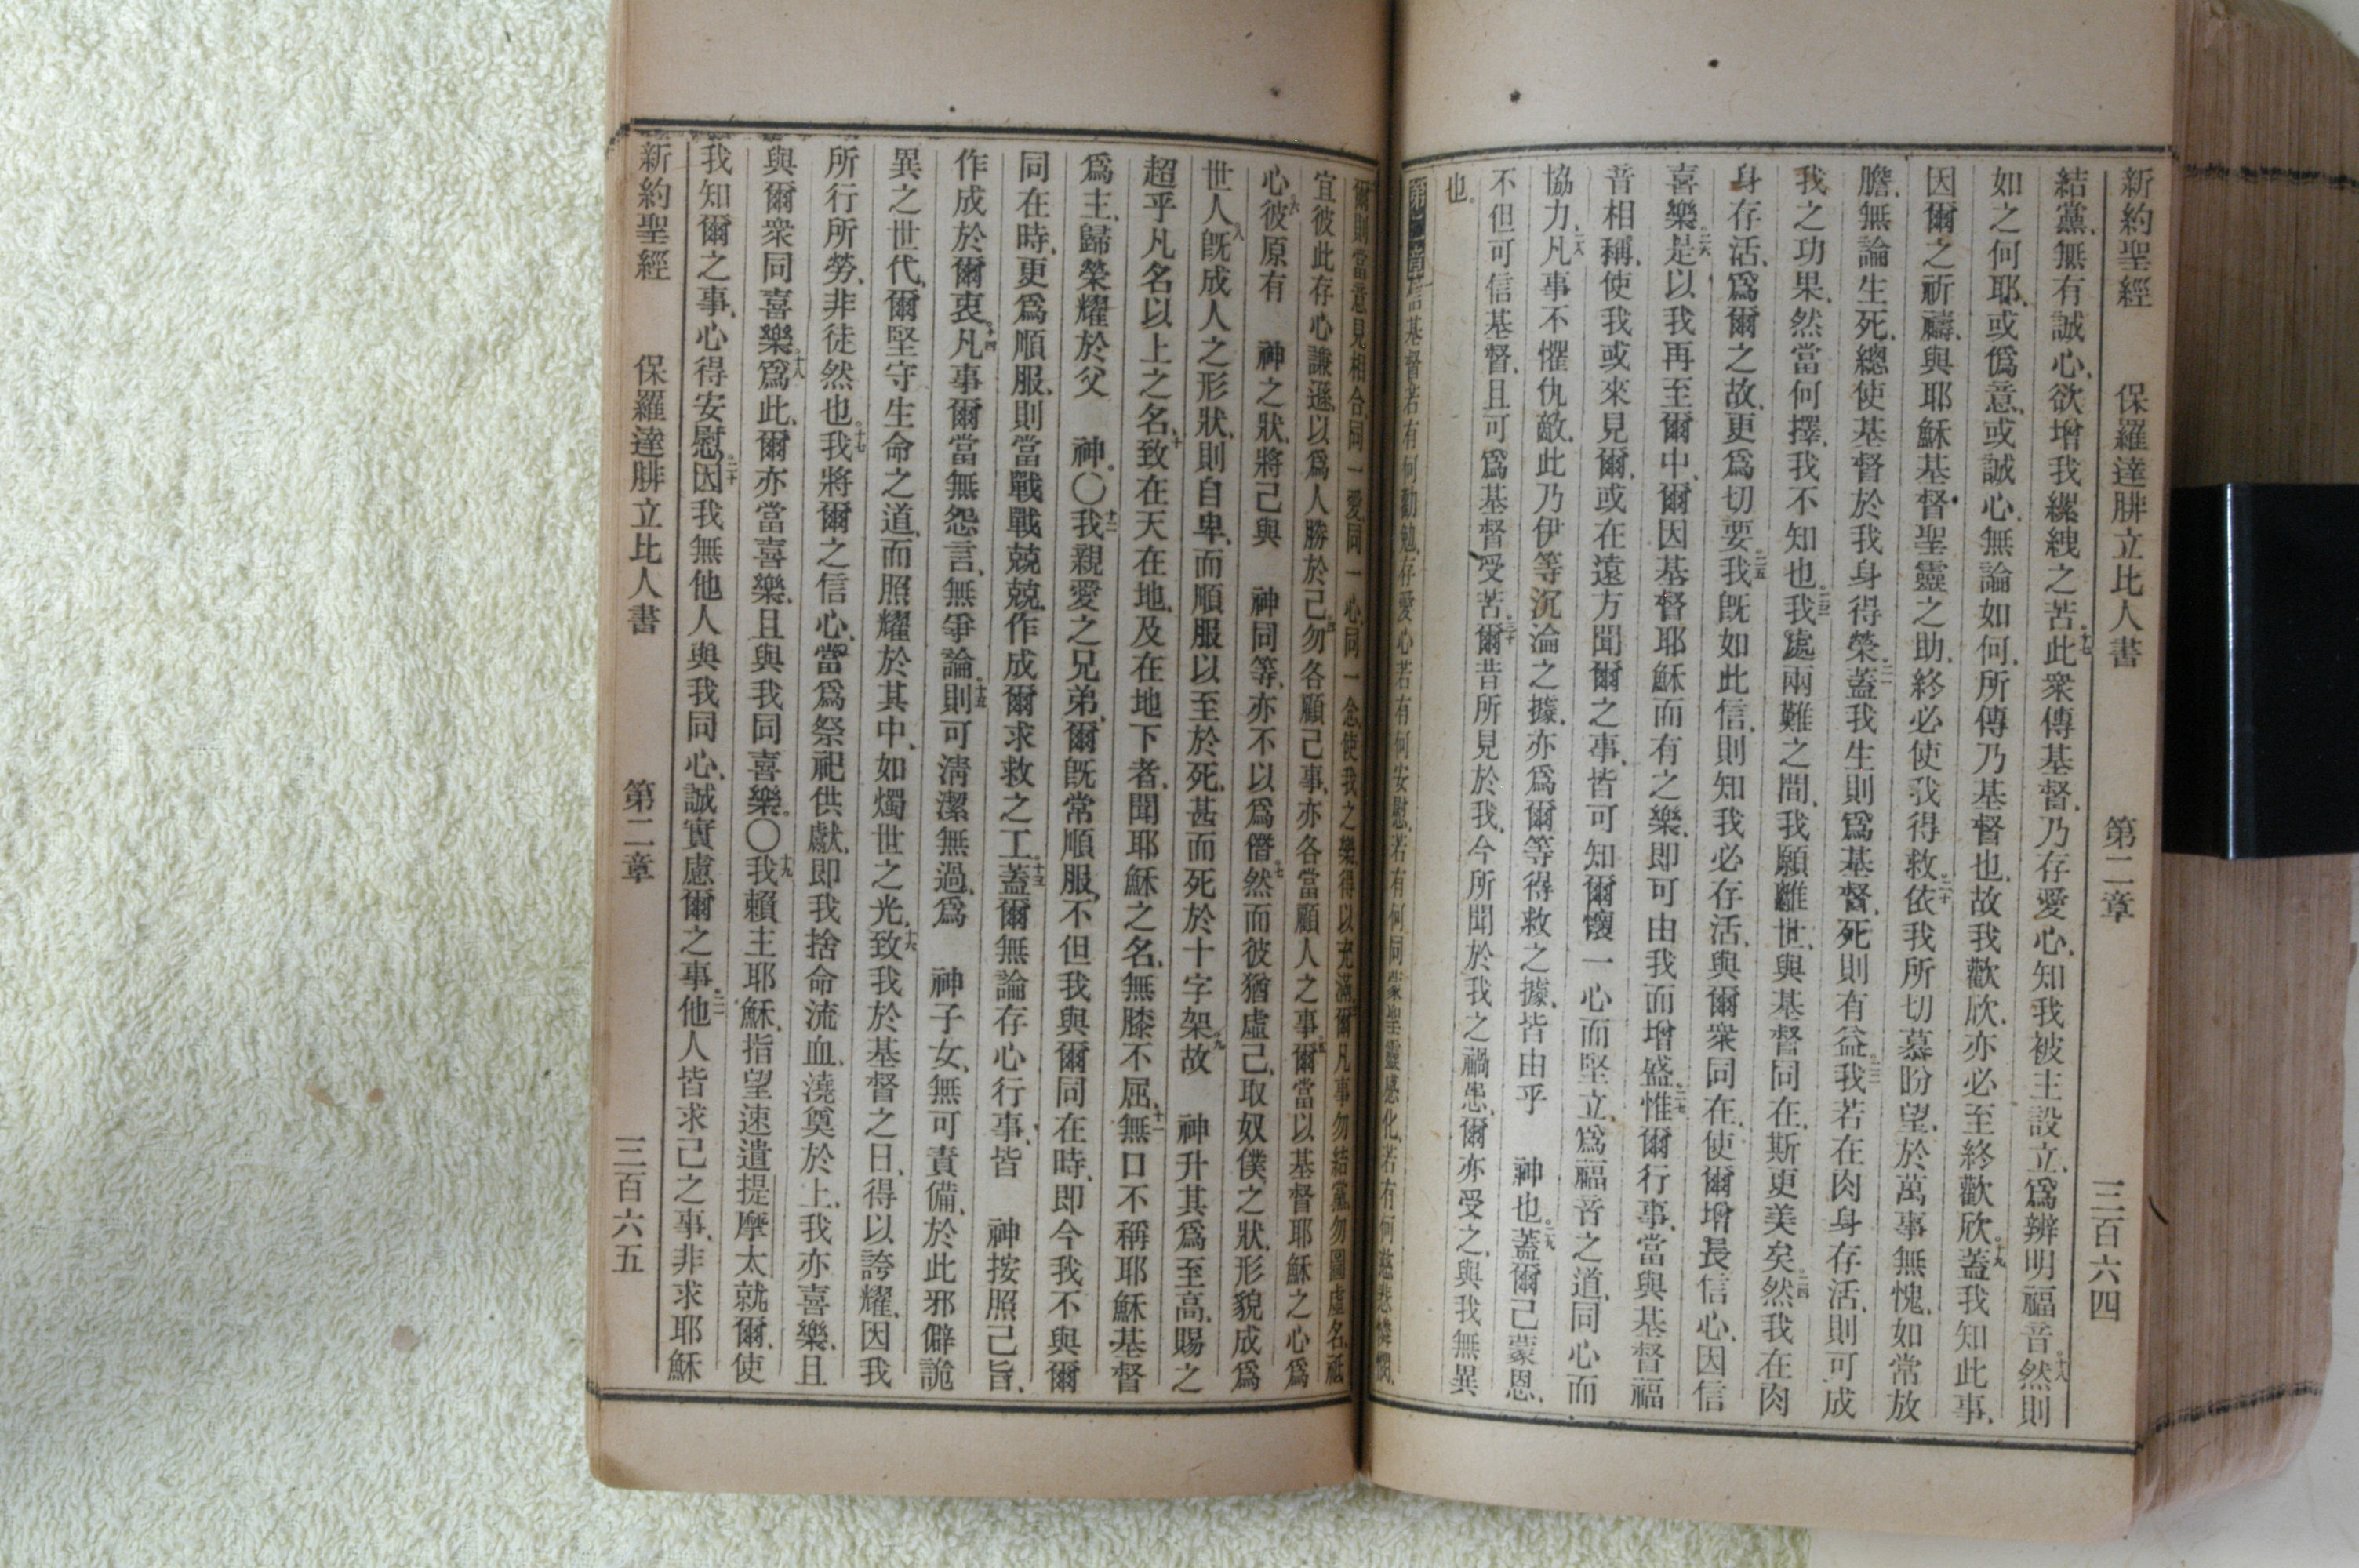 新約聖經 保羅達腓立比人書 第二章 三百六四
結黨、無有誠心、欲增我縲絏之苦、十七此衆傳基督、乃存愛心、知我被主設立、爲辨明福音、十八然則
如之何耶、或僞意、或誠心、無論如何、所傳乃基督也、故我歡欣、亦必至終歡欣、十九蓋我知此事、
因爾之祈禱、與耶穌基督聖靈之助、終必使我得救、二十依我所切慕盼望、於萬事無愧、如常放
膽、無論生死、總使基督於我身得榮、二一蓋我生則爲基督、死則有益、二二我若在肉身存活、則可成
我之功果、然當何擇、我不知也、二三我處兩難之間、我願離世、與基督同在、斯更美矣、二四然我在肉
身存活、爲爾之故、更爲切要、二五我旣如此信、則知我必存活、與爾衆同在、使爾增長信心、因信
喜樂、二六是以我再至爾中、爾因基督耶穌而有之樂、即可由我而增盛、二七惟爾行事、當與基督福
音相稱、使我或來見爾、或在遠方聞爾之事、皆可知爾懷一心而堅立、爲福音之道、同心而
協力、二八凡事不懼仇敵、此乃伊等沉淪之據、亦爲爾等得救之據、皆由乎 神也、二九蓋爾已蒙恩、
不但可信基督、且可爲基督受苦、三十爾昔所見於我、今所聞於我之禍患、爾亦受之、與我無異
也。
基督若有何勸勉、存愛心若有何安慰、若有何同蒙聖靈感化、若有何慈悲憐憫、
爾則當意見相合、同一愛、同一心、同一念、使我之樂得以充滿、爾凡事勿結黨、勿圖虛名、祗
宜彼此存心謙遜、以爲人勝於己、四勿各顧己事、亦各當顧人之事、五爾當以基督耶穌之心爲
心、六彼原有 神之狀、將己與 神同等、亦不以爲僭、七然而彼猶虛己、取奴僕之狀、形貌成爲
世人、八旣成人之形狀、則自卑、而順服以至於死、甚而死於十字架、九故 神升其爲至高、賜之
超乎凡名以上之名、十致在天在地、及在地下者、聞耶穌之名、無膝不屈、十一無口不稱耶穌基督
爲主、歸榮耀於父 神。〇十二我親愛之兄弟、爾旣常順服、不但我與爾同在時、即今我不與爾
同在時、更爲順服、則當戰戰兢兢、作成爾求救之工、十三蓋爾無論存心行事、皆 神按照己旨、
作成於爾衷、十四凡事爾當無怨言、無爭論、十五則可淸潔無過、爲 神子女、無可責備、於此邪僻詭
異之世代、爾堅守生命之道、而照耀於其中、如燭世之光、十六致我於基督之日、得以誇耀、因我
所行所勞、非徒然也、十七我將爾之信心、當爲祭祀供獻、即我捨命流血、澆奠於上、我亦喜樂、且
與爾衆同喜樂、十八爲此、爾亦當喜樂、且與我同喜樂。〇十九我賴主耶穌、指望速遣提摩太就爾、使
我知爾之事、心得安慰、二十因我無他人與我同心、誠實慮爾之事、二一他人皆求己之事、非求耶穌
新約聖經 保羅達腓立比人書 第二章 三百六五